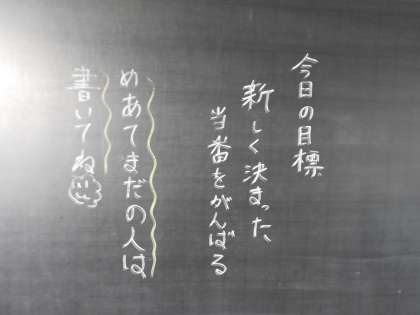 今日の目標
新しく決まった、
当番をがんばる
めあてまだの人は
書いてね